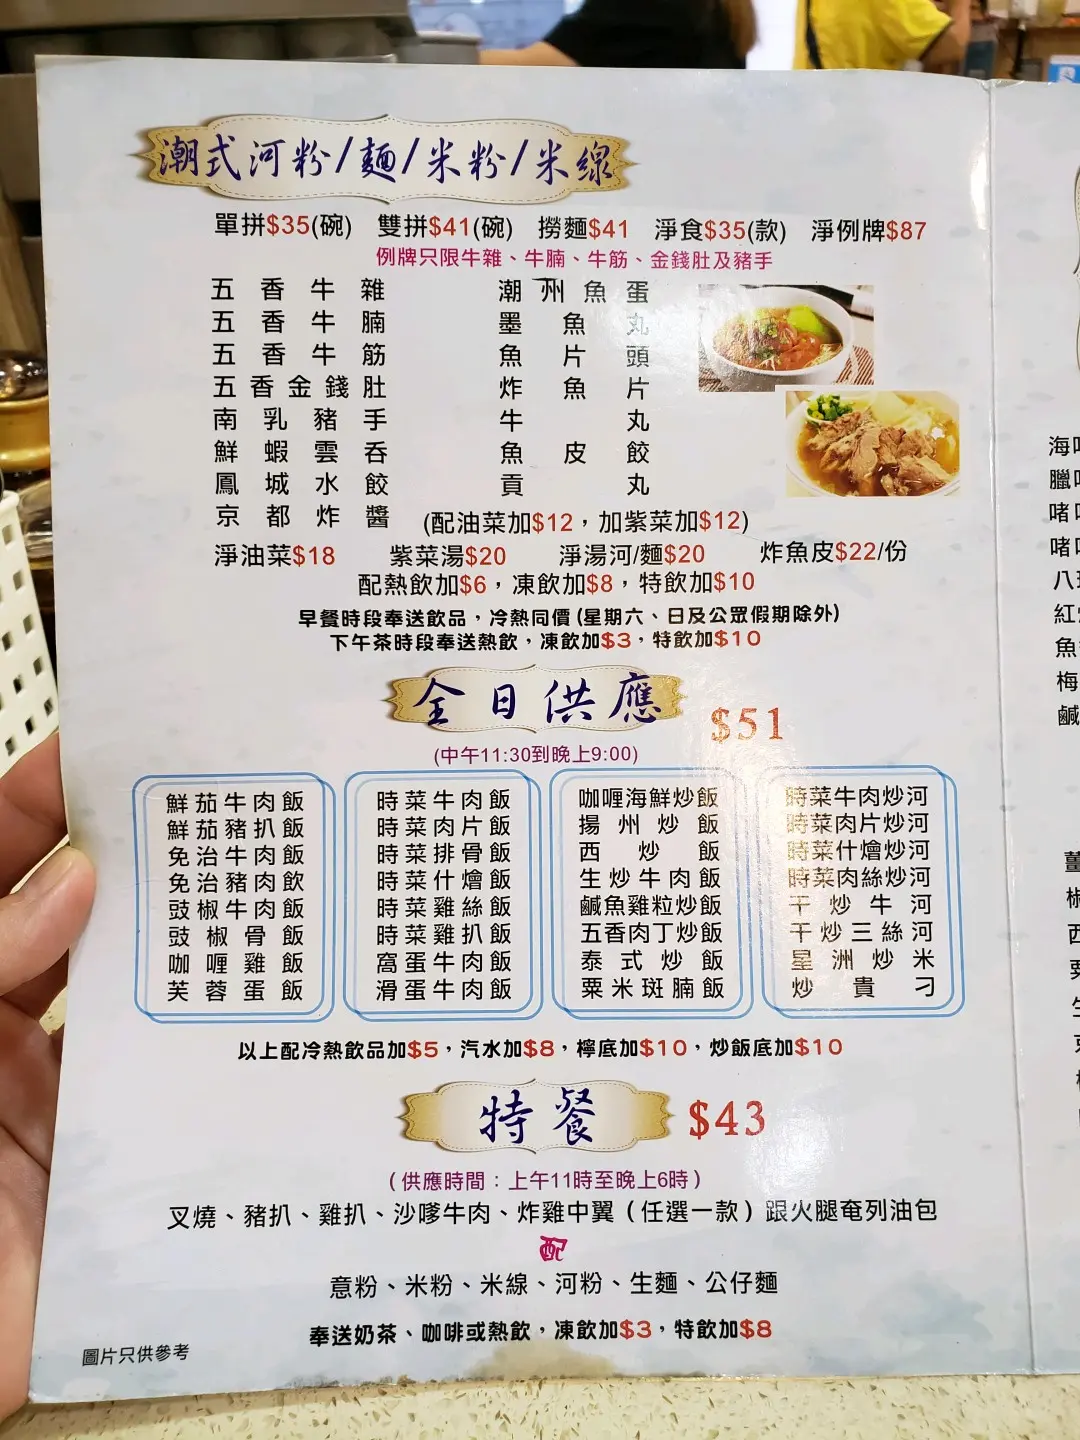 潮式河粉/麵/米粉/米線
單拼$35(碗) 雙拼$41(碗) 撈麵$41 淨食$35(款) 淨例牌$87
例牌只限牛雜、牛腩、牛筋、金錢肚及豬手
五香牛雜 潮州魚蛋
五香牛腩 墨魚丸
五香牛筋 魚片頭
五香金錢肚 炸魚片
南乳豬手 牛丸
鮮蝦雲吞 魚皮餃
鳳城水餃 貢丸
京都炸醬 (配油菜加$12，加紫菜加$12)
淨油菜$18 紫菜湯$20 淨湯河/麵$20 炸魚皮$22/份
配熱飲加$6，凍飲加$8，特飲加$10
早餐時段奉送飲品，冷熱同價(星期六、日及公眾假期除外)
下午茶時段奉送熱飲，凍飲加$3，特飲加$10
全日供應 $51
(中午11:30到晚上9:00)
鮮茄牛肉飯 時菜牛肉飯 咖喱海鮮炒飯 時菜牛肉炒河
鮮茄豬扒飯 時菜肉片飯 揚州炒飯 時菜肉片炒河
免治牛肉飯 時菜排骨飯 西炒飯 時菜什燴炒河
免治豬肉飲 時菜什燴飯 生炒牛肉飯 時菜肉絲炒河
豉椒牛肉飯 時菜雞絲飯 鹹魚雞粒炒飯 干炒牛河
豉椒骨飯 時菜雞扒飯 五香肉丁炒飯 干炒三絲河
咖喱雞飯 窩蛋牛肉飯 泰式炒飯 星洲炒米
芙蓉蛋飯 滑蛋牛肉飯 粟米斑腩飯 炒貴刁
以上配冷熱飲品加$5，汽水加$8，檸底加$10，炒飯底加$10
特餐 $43
（供應時間：上午11時至晚上6時）
叉燒、豬扒、雞扒、沙嗲牛肉、炸雞中翼（任選一款）跟火腿奄列油包
配
意粉、米粉、米線、河粉、生麵、公仔麵
奉送奶茶、咖啡或熱飲，凍飲加$3，特飲加$8
圖片只供參考
海
臘
啫
啫
八
紅
魚
梅
鹹
椒
西
粟